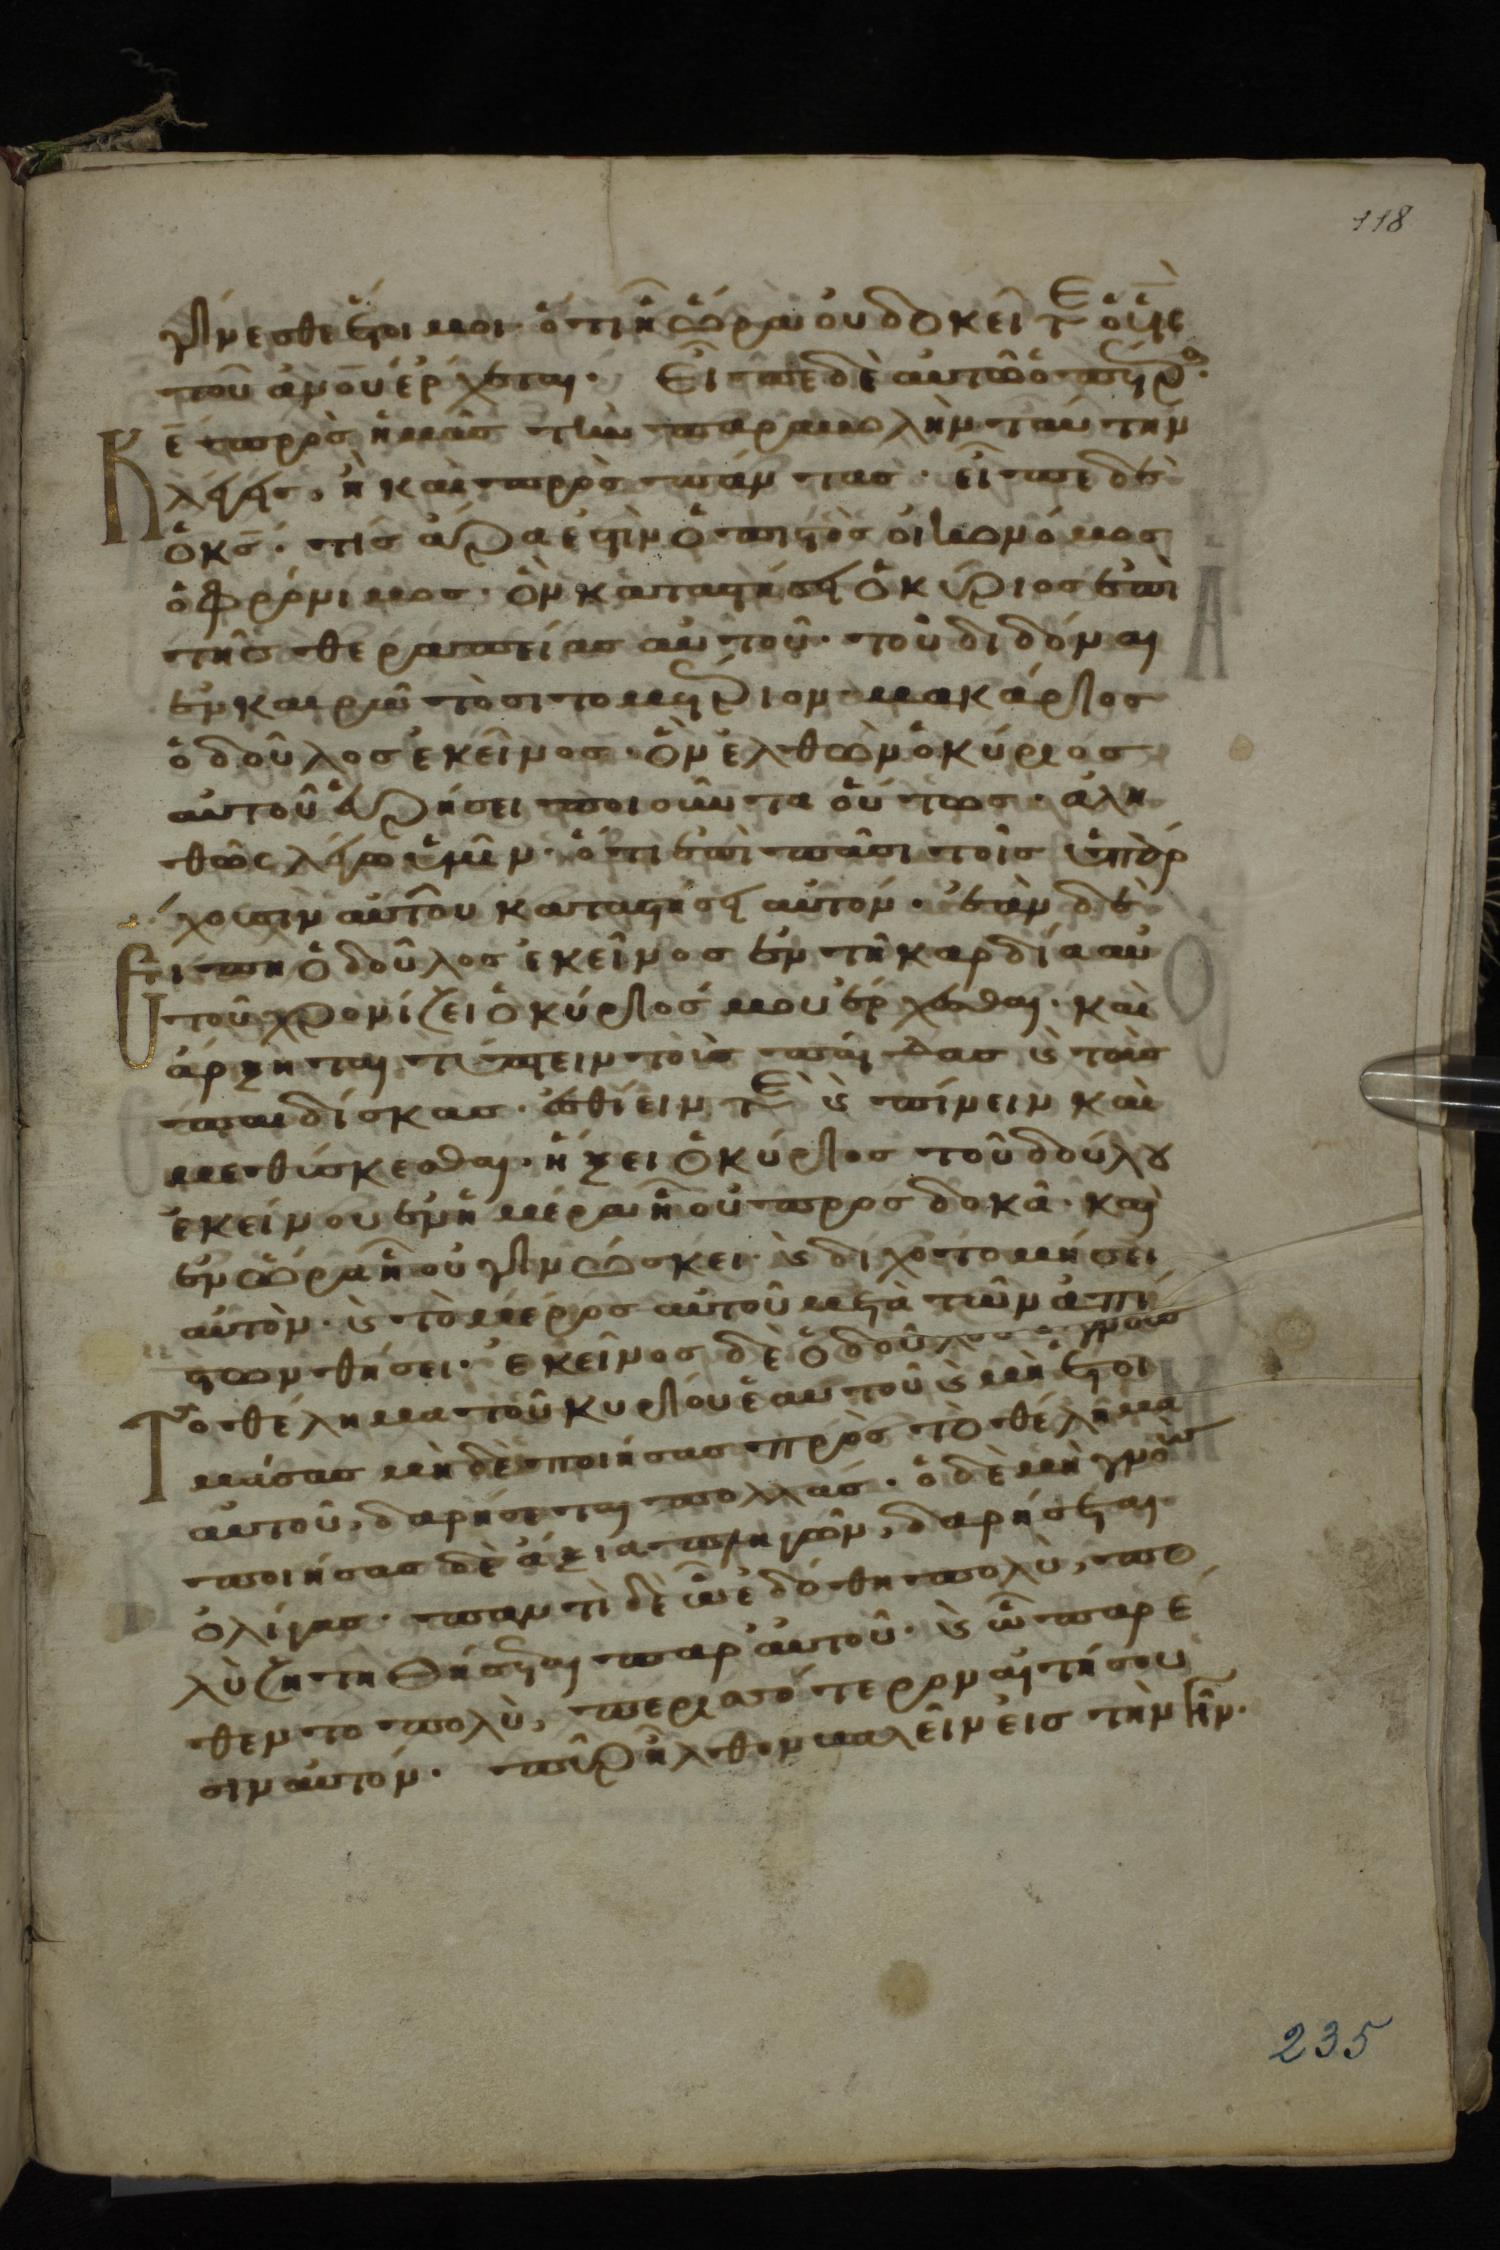 118
γίνεσθε ἕτοιμοι· ὅτι ἧ ὥρα οὐ δοκεῖτε ὁ υἱς
τοῦ ἀνου ἔρχεται· Εἶπε δὲ αὐτῶ ὁ πέτρο·
κε πρὸς ἡμᾶς τὴν παραβολὴν ταύτην
λέγεις, ἢ καὶ πρὸς πάντας· εἶπε δὲ
ὁ κς· τίς ἄρα ἐστὶν ὁ πιστὸς οἰκονόμος
ὁ φρόνιμος· ὃν καταστήσει ὁ κύριος ἐπὶ
τῆς θεραπείας αὐτοῦ· τοῦ διδόναι
ἐν καιρῶ τὸ σιτομέτριον· μακάριος
ὁ δοῦλος ἐκεῖνος· ὃν ἐλθὼν ὁ κύριος
αὐτοῦ εὑρήσει ποιοῦντα οὕτως· ἀλη
θῶς λέγω ὑμῖν· ὅτι ἐπὶ πᾶσι τοῖς ὑπάρ
χουσιν αὐτοῦ καταστήσει αὐτόν· ἐὰν δὲ
εἴπη ὁ δοῦλος ἐκεῖνος ἐν τῆ καρδία αὐ
τοῦ χρονίζει ὁ κύριός μου ἔρχεσθαι· καὶ
ἄρξηται τύπτειν τοὺς παῖδας καὶ τὰς
παιδίσκας· ἐσθίειν τε καὶ πίνειν καὶ
μεθύσκεσθαι· ἥξει ὁ κύριος τοῦ δούλου
ἐκείνου ἐν ἡμέρα ἧ οὐ προσδοκᾶ· καὶ
ἐν ὥρα ἧ οὐ γινώσκει· καὶ διχοτομήσει
αὐτὸν· καὶ τὸ μέρος αὐτοῦ μετὰ τῶν ἀπί
στων θήσει· ἐκεῖνος δὲ ὁ δοῦλος ὁ γνοὺς
Τὸ θέλημα τοῦ κυρίου ἑαυτοῦ καὶ μὴ ἑτοι
μάσας μηδὲ ποιήσας πρὸς τὸ θέλημα
αὐτοῦ, δαρήσεται πολλάς· ὁ δὲ μὴ γνοὺς
ποιήσας δὲ ἄξια πληγῶν, δαρήσεται
ὀλίγας· παντὶ δὲ ὧ ἐδόθη πολὺ, πο
λὺ ζητηθήσεται παρ' αὐτοῦ· καὶ ὧ παρέ
θεντο πολὺ, περισσότερον αἰτήσου
σιν αὐτόν· πῦρ ἦλθον βαλεῖν εἰς τὴν γῆν·
235